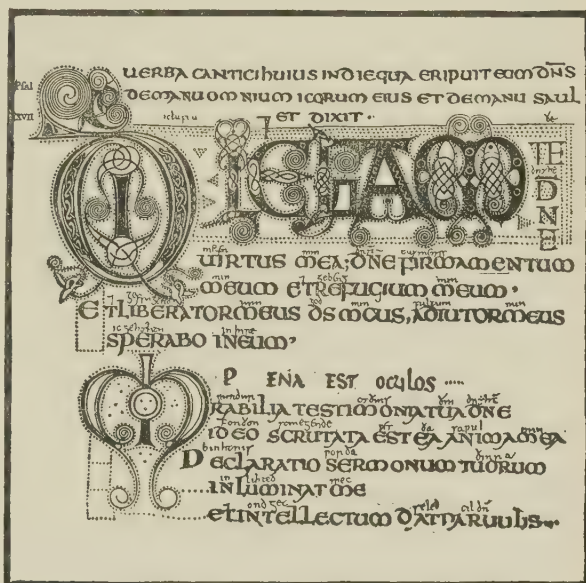 Psal UERBA CANTICI HUIUS IN DIE QUA ERIPUIT EUM DNS
XVII DEMANU OMNIUM ICORUM EIUS ET DEMANU SAUL
ET DIXIT.
DILIGAM TE
DNE
UIRTUS MEA; DNE FIRMAMENTUM
MEUM ET REFUGIUM MEUM.
ET LIBERATOR MEUS DS MEUS, ADIUTOR MEUS
SPERABO IN EUM,
P ENA EST OCULOS
MIRABILIA TESTIMONIA TUA DNE
IDEO SCRUTATA EST EA ANIMA MEA
DECLARATIO SERMONUM TUORUM
INLUMINAT ME
ET INTELLECTUM DAT PARUULIS